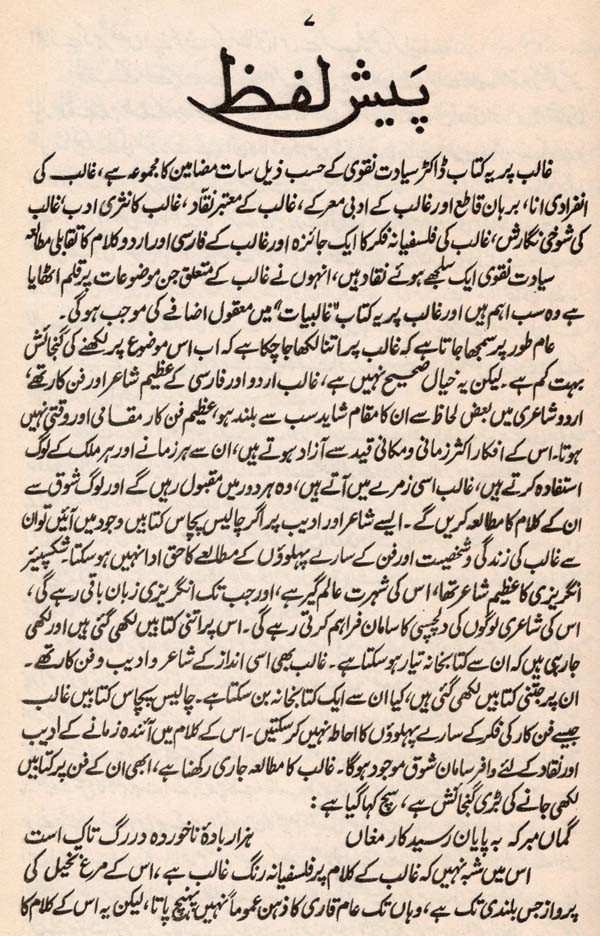 ۷
پیش لفظ
غالب پر یہ کتاب ڈاکٹر سیادت نقوی کے حسب ذیل سات مضامین کا مجموعہ ہے، غالب کی
انفرادی انا، برہان قاطع اور غالب کے ادبی معرکے، غالب کے معتبر نقاد، غالب کا نثری ادب، غالب
کی شوخیٔ نگارش، غالب کی فلسفیانہ فکر کا ایک جائزہ اور غالب کے فارسی اور اردو کلام کا تقابلی مطالعہ
سیادت نقوی ایک سلجھے ہوئے نقاد ہیں، انہوں نے غالب کے متعلق جن موضوعات پر قلم اٹھایا
ہے وہ سب اہم ہیں اور غالب پر یہ کتاب "غالبیات" میں معقول اضافے کی موجب ہوگی۔
عام طور پر سمجھا جاتا ہے کہ غالب پر اتنا لکھا جا چکا ہے کہ اب اس موضوع پر لکھنے کی گنجائش
بہت کم ہے۔ لیکن یہ خیال صحیح نہیں ہے، غالب اردو اور فارسی کے عظیم شاعر اور فن کار تھے،
اردو شاعری میں بعض لحاظ سے ان کا مقام شاید سب سے بلند ہو، عظیم فن کار مقامی اور وقتی نہیں
ہوتا۔ اس کے افکار اکثر زمانی و مکانی قید سے آزاد ہوتے ہیں، ان سے ہر زمانے اور ہر ملک کے لوگ
استفادہ کرتے ہیں، غالب اسی زمرے میں آتے ہیں، وہ ہر دور میں مقبول رہیں گے اور لوگ شوق سے
ان کے کلام کا مطالعہ کریں گے۔ ایسے شاعر اور ادیب پر اگر چالیس پچاس کتابیں وجود میں آئیں تو ان
سے غالب کی زندگی و شخصیت اور فن کے سارے پہلوؤں کے مطالعے کا حق ادا نہیں ہو سکتا۔ شکسپیئر
انگریزی کا عظیم شاعر تھا، اس کی شہرت عالم گیر ہے، اور جب تک انگریزی زبان باقی رہے گی،
اس کی شاعری لوگوں کی دلچسپی کا سامان فراہم کرتی رہے گی۔ اس پر اتنی کتابیں لکھی گئی ہیں اور لکھی
جا رہی ہیں کہ ان سے کتابخانہ تیار ہو سکتا ہے۔ غالب بھی اسی انداز کے شاعر و ادیب و فن کار تھے۔
ان پر جتنی کتابیں لکھی گئی ہیں، کیا ان سے ایک کتابخانہ بن سکتا ہے۔ چالیس پچاس کتابیں غالب
جیسے فن کار کی فکر کے سارے پہلوؤں کا احاطہ نہیں کر سکتیں۔ اس کے کلام میں آئندہ زمانے کے ادیب
اور نقاد کے لئے وافر سامان شوق موجود ہوگا۔ غالب کا مطالعہ جاری رکھنا ہے، ابھی ان کے فن پر کتابیں
لکھی جانے کی بڑی گنجائش ہے، سچ کہا گیا ہے:
گماں مبر کہ بہ پایان رسید کار مغاں ہزار بادۂ ناخوردہ در رگ تاک است
اس میں شبہ نہیں کہ غالب کے کلام پر فلسفیانہ رنگ غالب ہے، اس کے مرغ تخیل کی
پرواز جس بلندی تک ہے، وہاں تک عام قاری کا ذہن عموماً نہیں پہنچ پاتا، لیکن یہ اس کے کلام کا